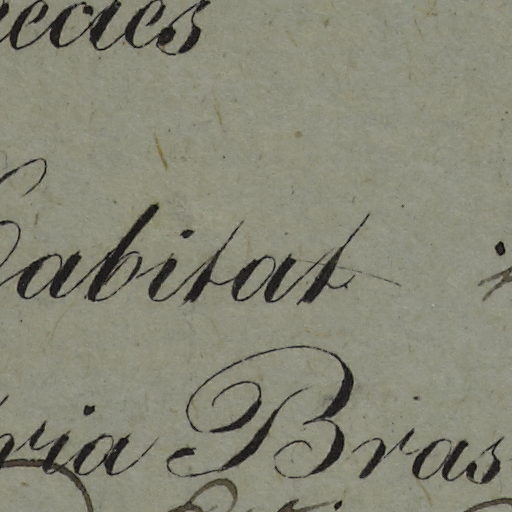 ecies
Habitat i
ria Bras